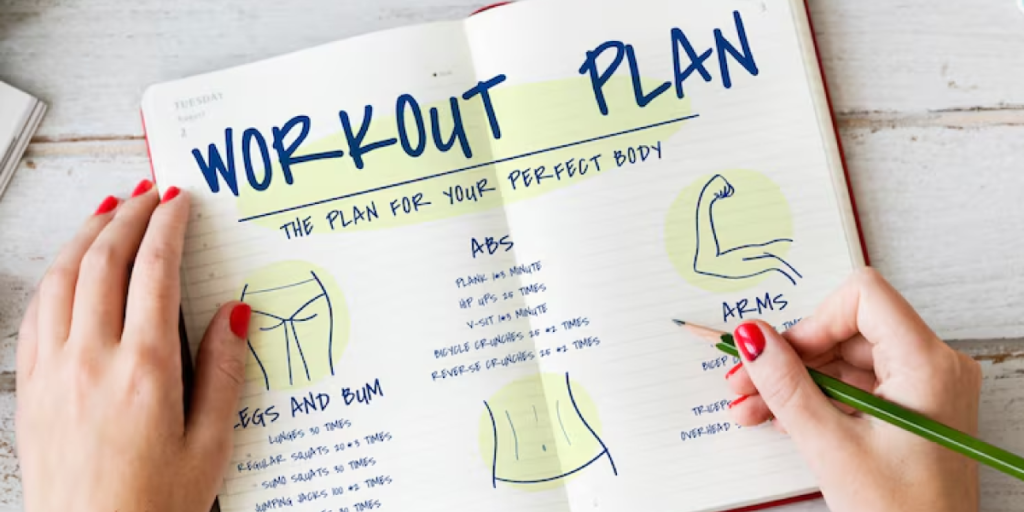 TUESDAY
August
2
3
WORKOUT PLAN
THE PLAN FOR YOUR PERFECT BODY
ABS
PLANK 1*3 MINUTE
HIP UPS 25 TIMES
V-SIT 1*3 MINUTE
BICYCLE CRUNCHES 25 *2 TIMES
REVERSE CRUNCHES 25 *2 TIMES
LEGS AND BUM
LUNGES 30 TIMES
REGULAR SQUATS 20*3 TIMES
- SUMO SQUATS 30 TIMES
JUMPING JACKS 100 *2 TIMES
30 TIMES
ARMS
BICEP
TRICEPS
OVERHEAD